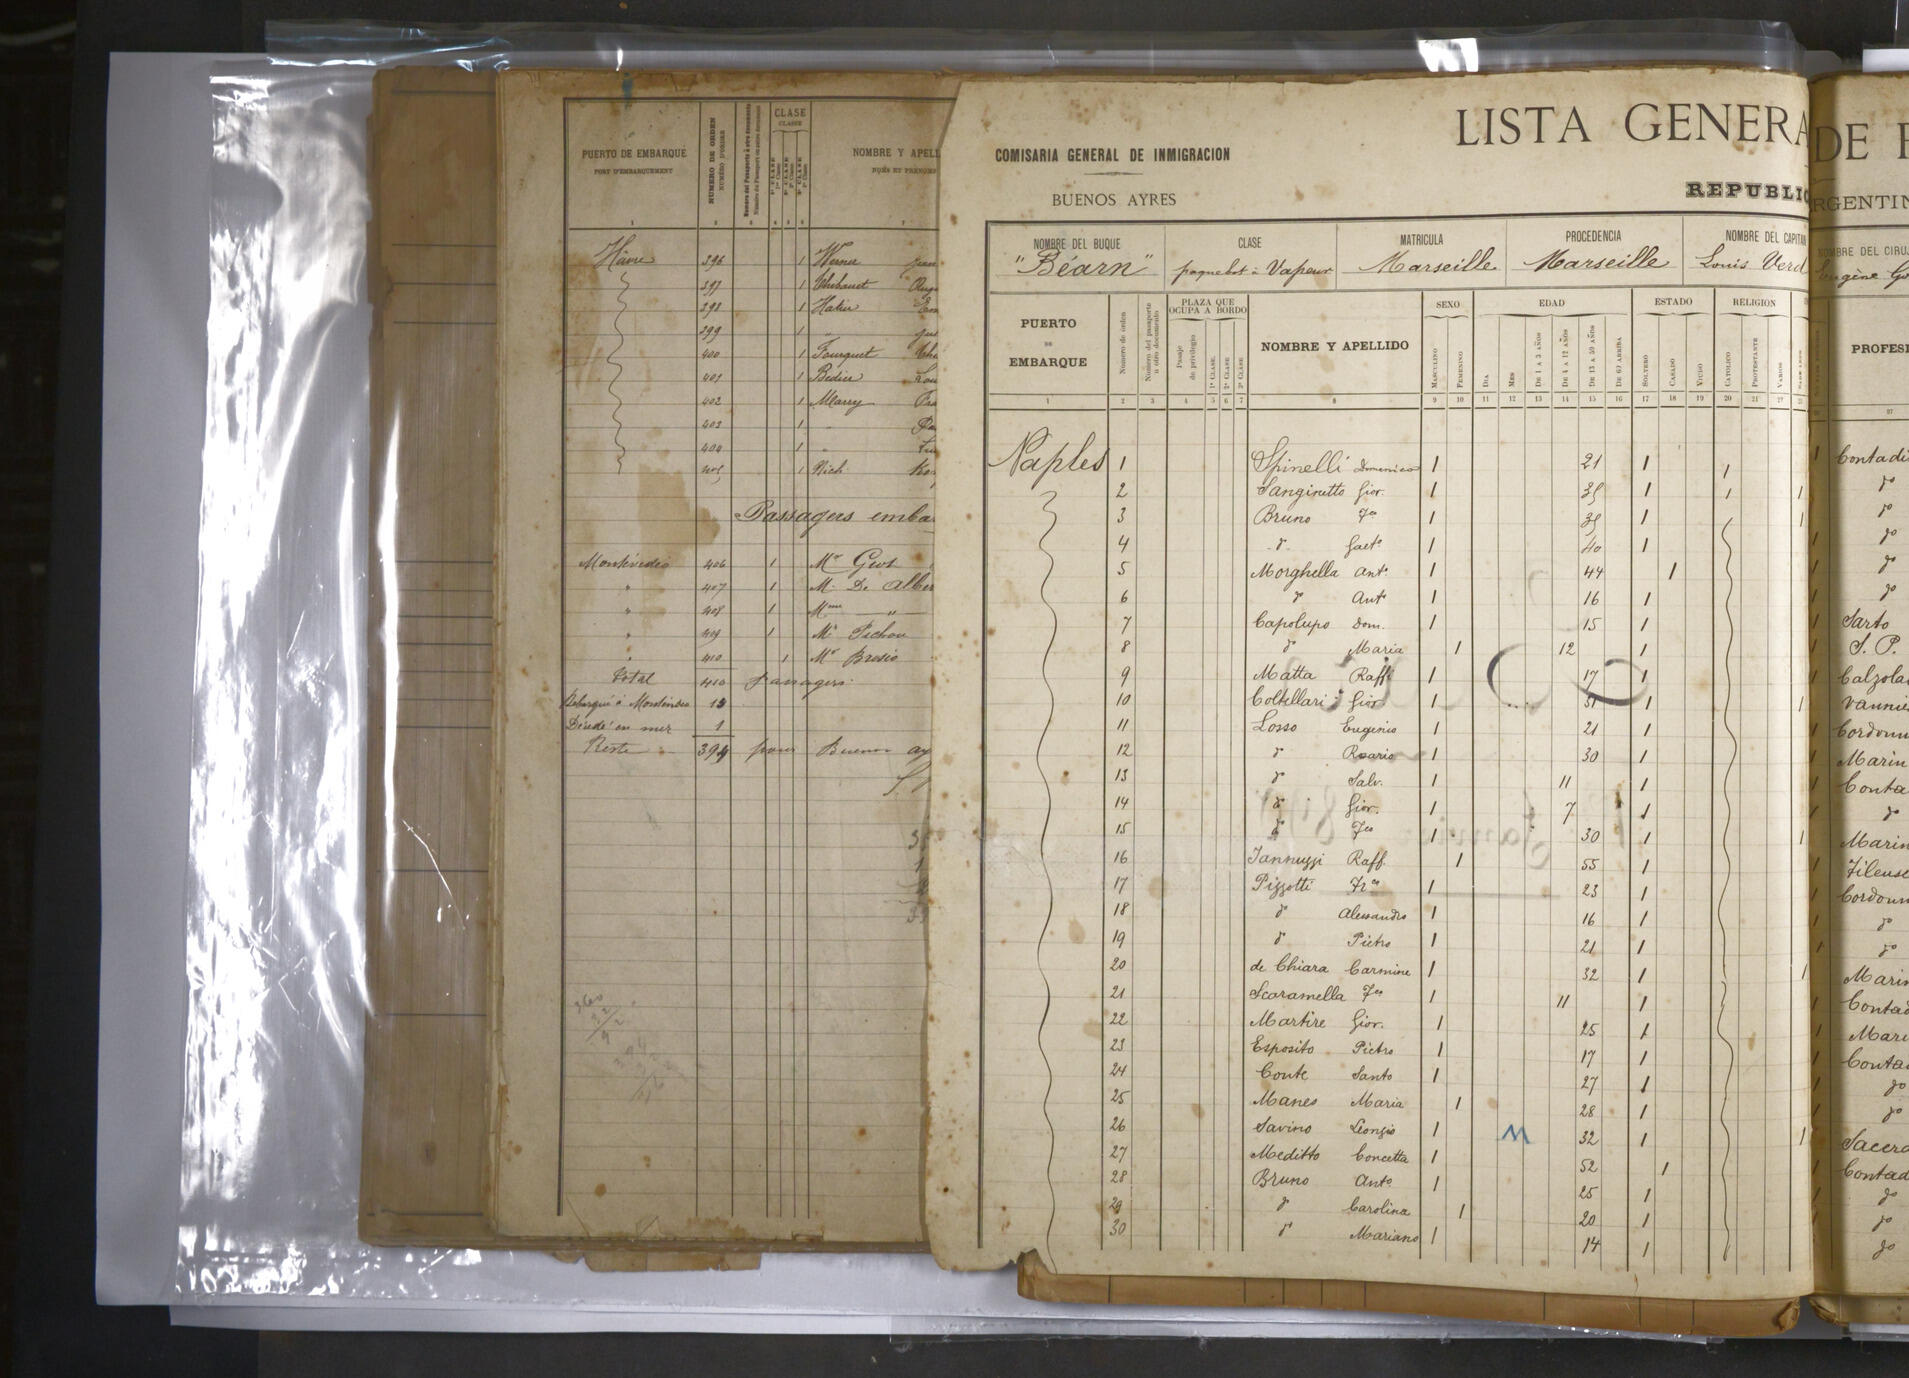 PUERTO DE EMBARQUE
PORT D'EMBARQUEMENT
NUMERO DE ORDEN
NUMÉRO D'ORDRE
CLASE
CLASSE
NOMBRE Y APELL
NOMS ET PRÉNOMS
Hâvre 396 1 Werner
397 1 Thibaut
398 1 Hatier
399 1 "
400 1 Fourquet
401 1 Bedier
402 1 Marry
403 1 "
404 1 "
405 1 Rich
Passagers emba
Montévidéo 406 1 Mr Gros
" 407 1 M. De Alber
" 408 1 Mme "
" 409 1 Mr Pichou
" 410 1 Mr Brosio
Total 410 passagers.
Débarqué à Montévideo 15
Décédé en mer 1
Reste 394 pour Buenos ay
COMISARIA GENERAL DE INMIGRACION
BUENOS AYRES
LISTA GENERA DE P
REPUBLIC RGENTIN
NOMBRE DEL BUQUE CLASE MATRICULA PROCEDENCIA NOMBRE DEL CAPITAN NOMBRE DEL CIRUJ
"Béarn" paquebot à Vapeur Marseille Marseille Louis Verd Eugène Go
PUERTO DE EMBARQUE
Número de órden
Número del pasaporte u otro documento
PLAZA QUE OCUPA A BORDO
Pasaje de privilegio
1ª CLASE
2ª CLASE
3ª CLASE
NOMBRE Y APELLIDO
SEXO
MASCULINO
FEMENINO
EDAD
DIA
MES
DE 1 A 3 AÑOS
DE 4 A 12 AÑOS
DE 13 A 59 AÑOS
DE 60 ARRIBA
ESTADO
SOLTERO
CASADO
VIUDO
RELIGION
CATOLICO
PROTESTANTE
VARIOS
PROFESI
1 2 3 4 5 6 7 8 9 10 11 12 13 14 15 16 17 18 19 20 21 22 23 27
Naples 1 Spinelli Domenico 1 21 1 1 Contadi
2 Sanginetto Gior. 1 35 1 1 1 do
3 Bruno Fco 1 35 1 1 do
4 do Gaeto 1 40 1 do
5 Morghella Anto 1 44 1 do
6 do Anto 16 1 do
7 Capolupo Dom. 1 15 1 Sarto
8 do Maria 1 12 1 S. P.
9 Matta Raff. 1 17 1 Calzola
10 Coltellari Gior 1 31 1 1 Vannie
11 Losso Eugenio 1 21 1 Cordonn
12 do Rosario 1 30 1 Marin
13 do Salv. 1 11 1 Conta
14 do Gior. 1 7 1 do
15 do Fco 1 30 1 1 Marin
16 Iannuzzi Raff. 1 55 1 Fileuse
17 Pizzotti Frco 1 23 1 Cordonn
18 do Alessandro 1 16 1 do
19 do Pietro 1 21 1 do
20 de Chiara Carmine 1 32 1 1 Marin
21 Scaramella Fco 1 11 1 Contad
22 Martire Gior. 1 25 1 Mari
23 Esposito Pietro 1 17 1 Conta
24 Conte Santo 1 27 1 do
25 Manes Maria 1 28 1 do
26 Savino Leonzio 1 M 32 1 1 Sacerd
27 Meditto Concetta 1 52 1 Contad
28 Bruno Anto 1 25 1 do
29 do Carolina 1 20 1 do
30 do Mariano 1 14 1 do